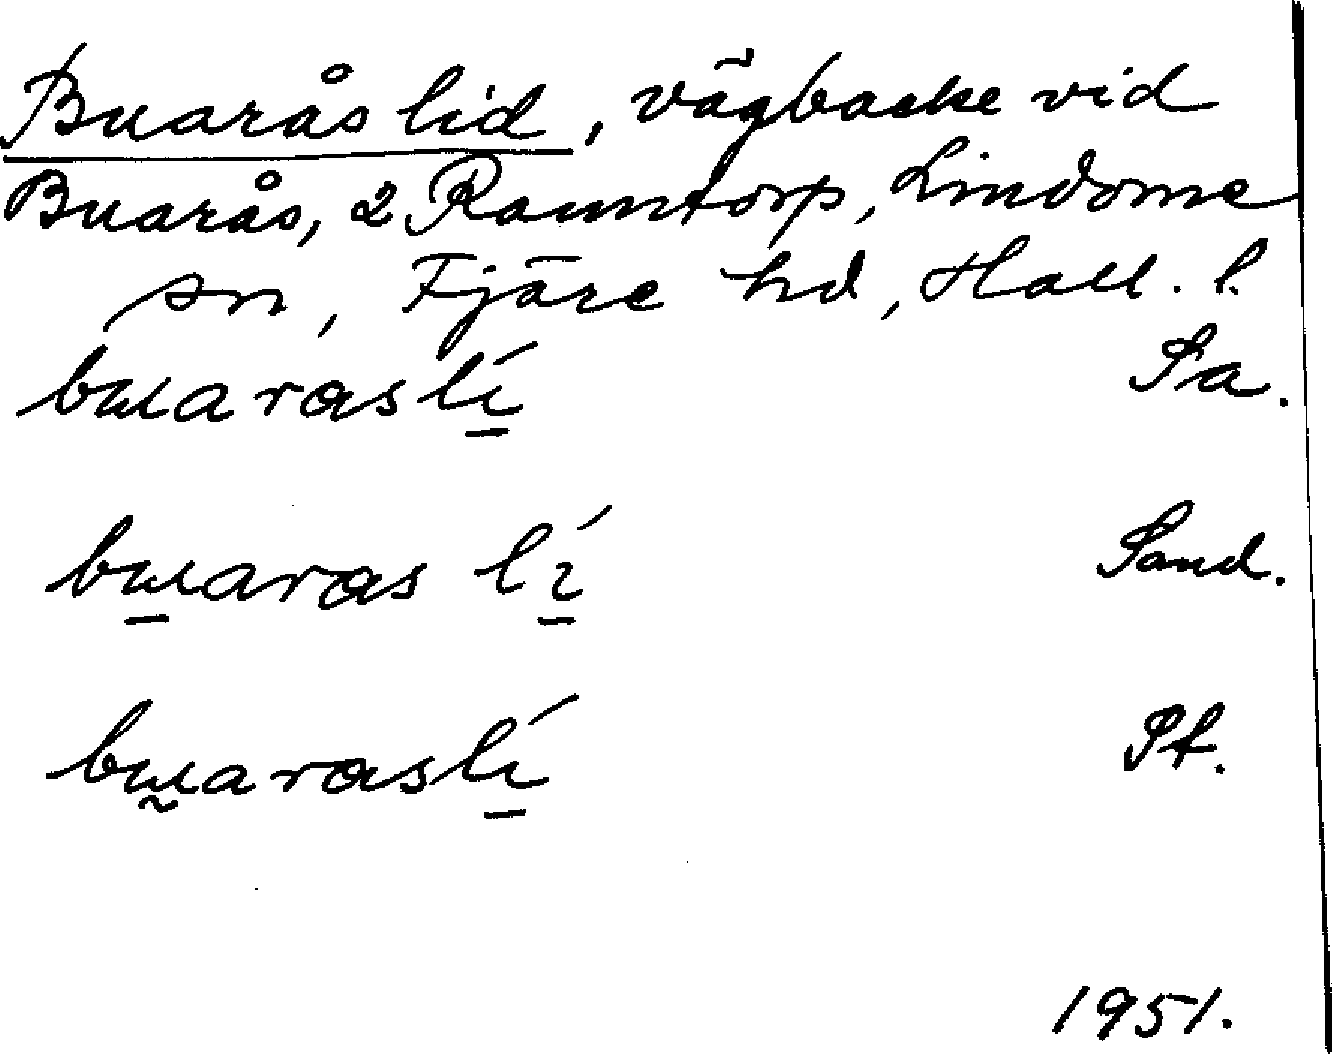 Buarås lid, vägbacke vid
Buarås, 2 Ramntorp, Lindome
sn, Fjäre hd, Hall. l.
buaraslí Sa.
buaras lí Sand.
buaraslí Pt.
1951.